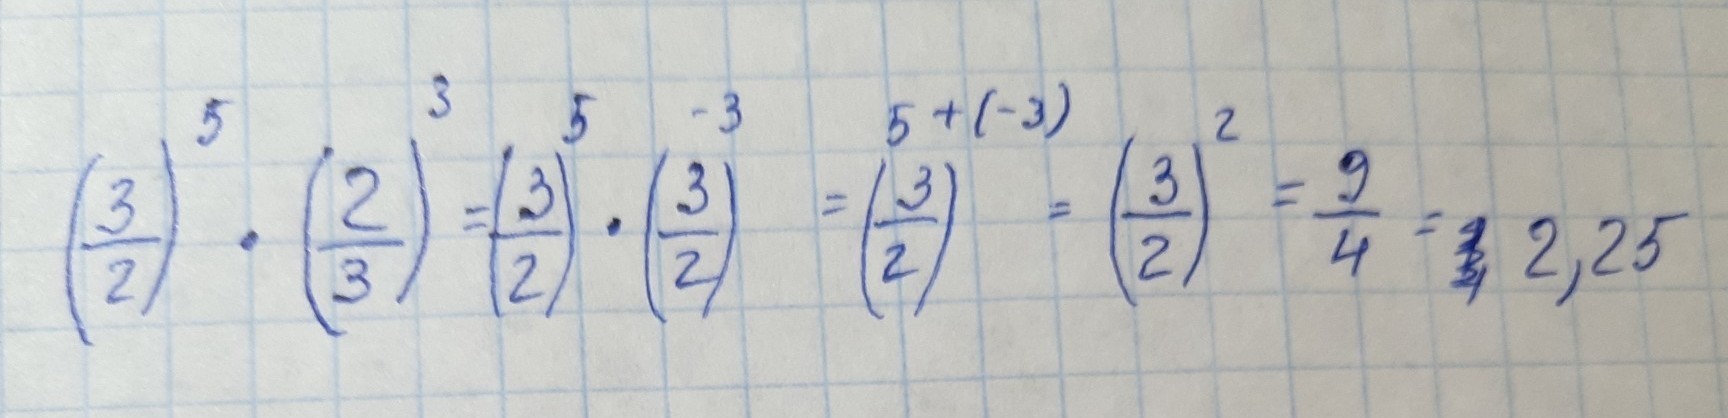 (3/2)^5 · (2/3)^3 = (3/2)^5 · (3/2)^-3 = (3/2)^5+(-3) = (3/2)^2 = 9/4 = 2,25